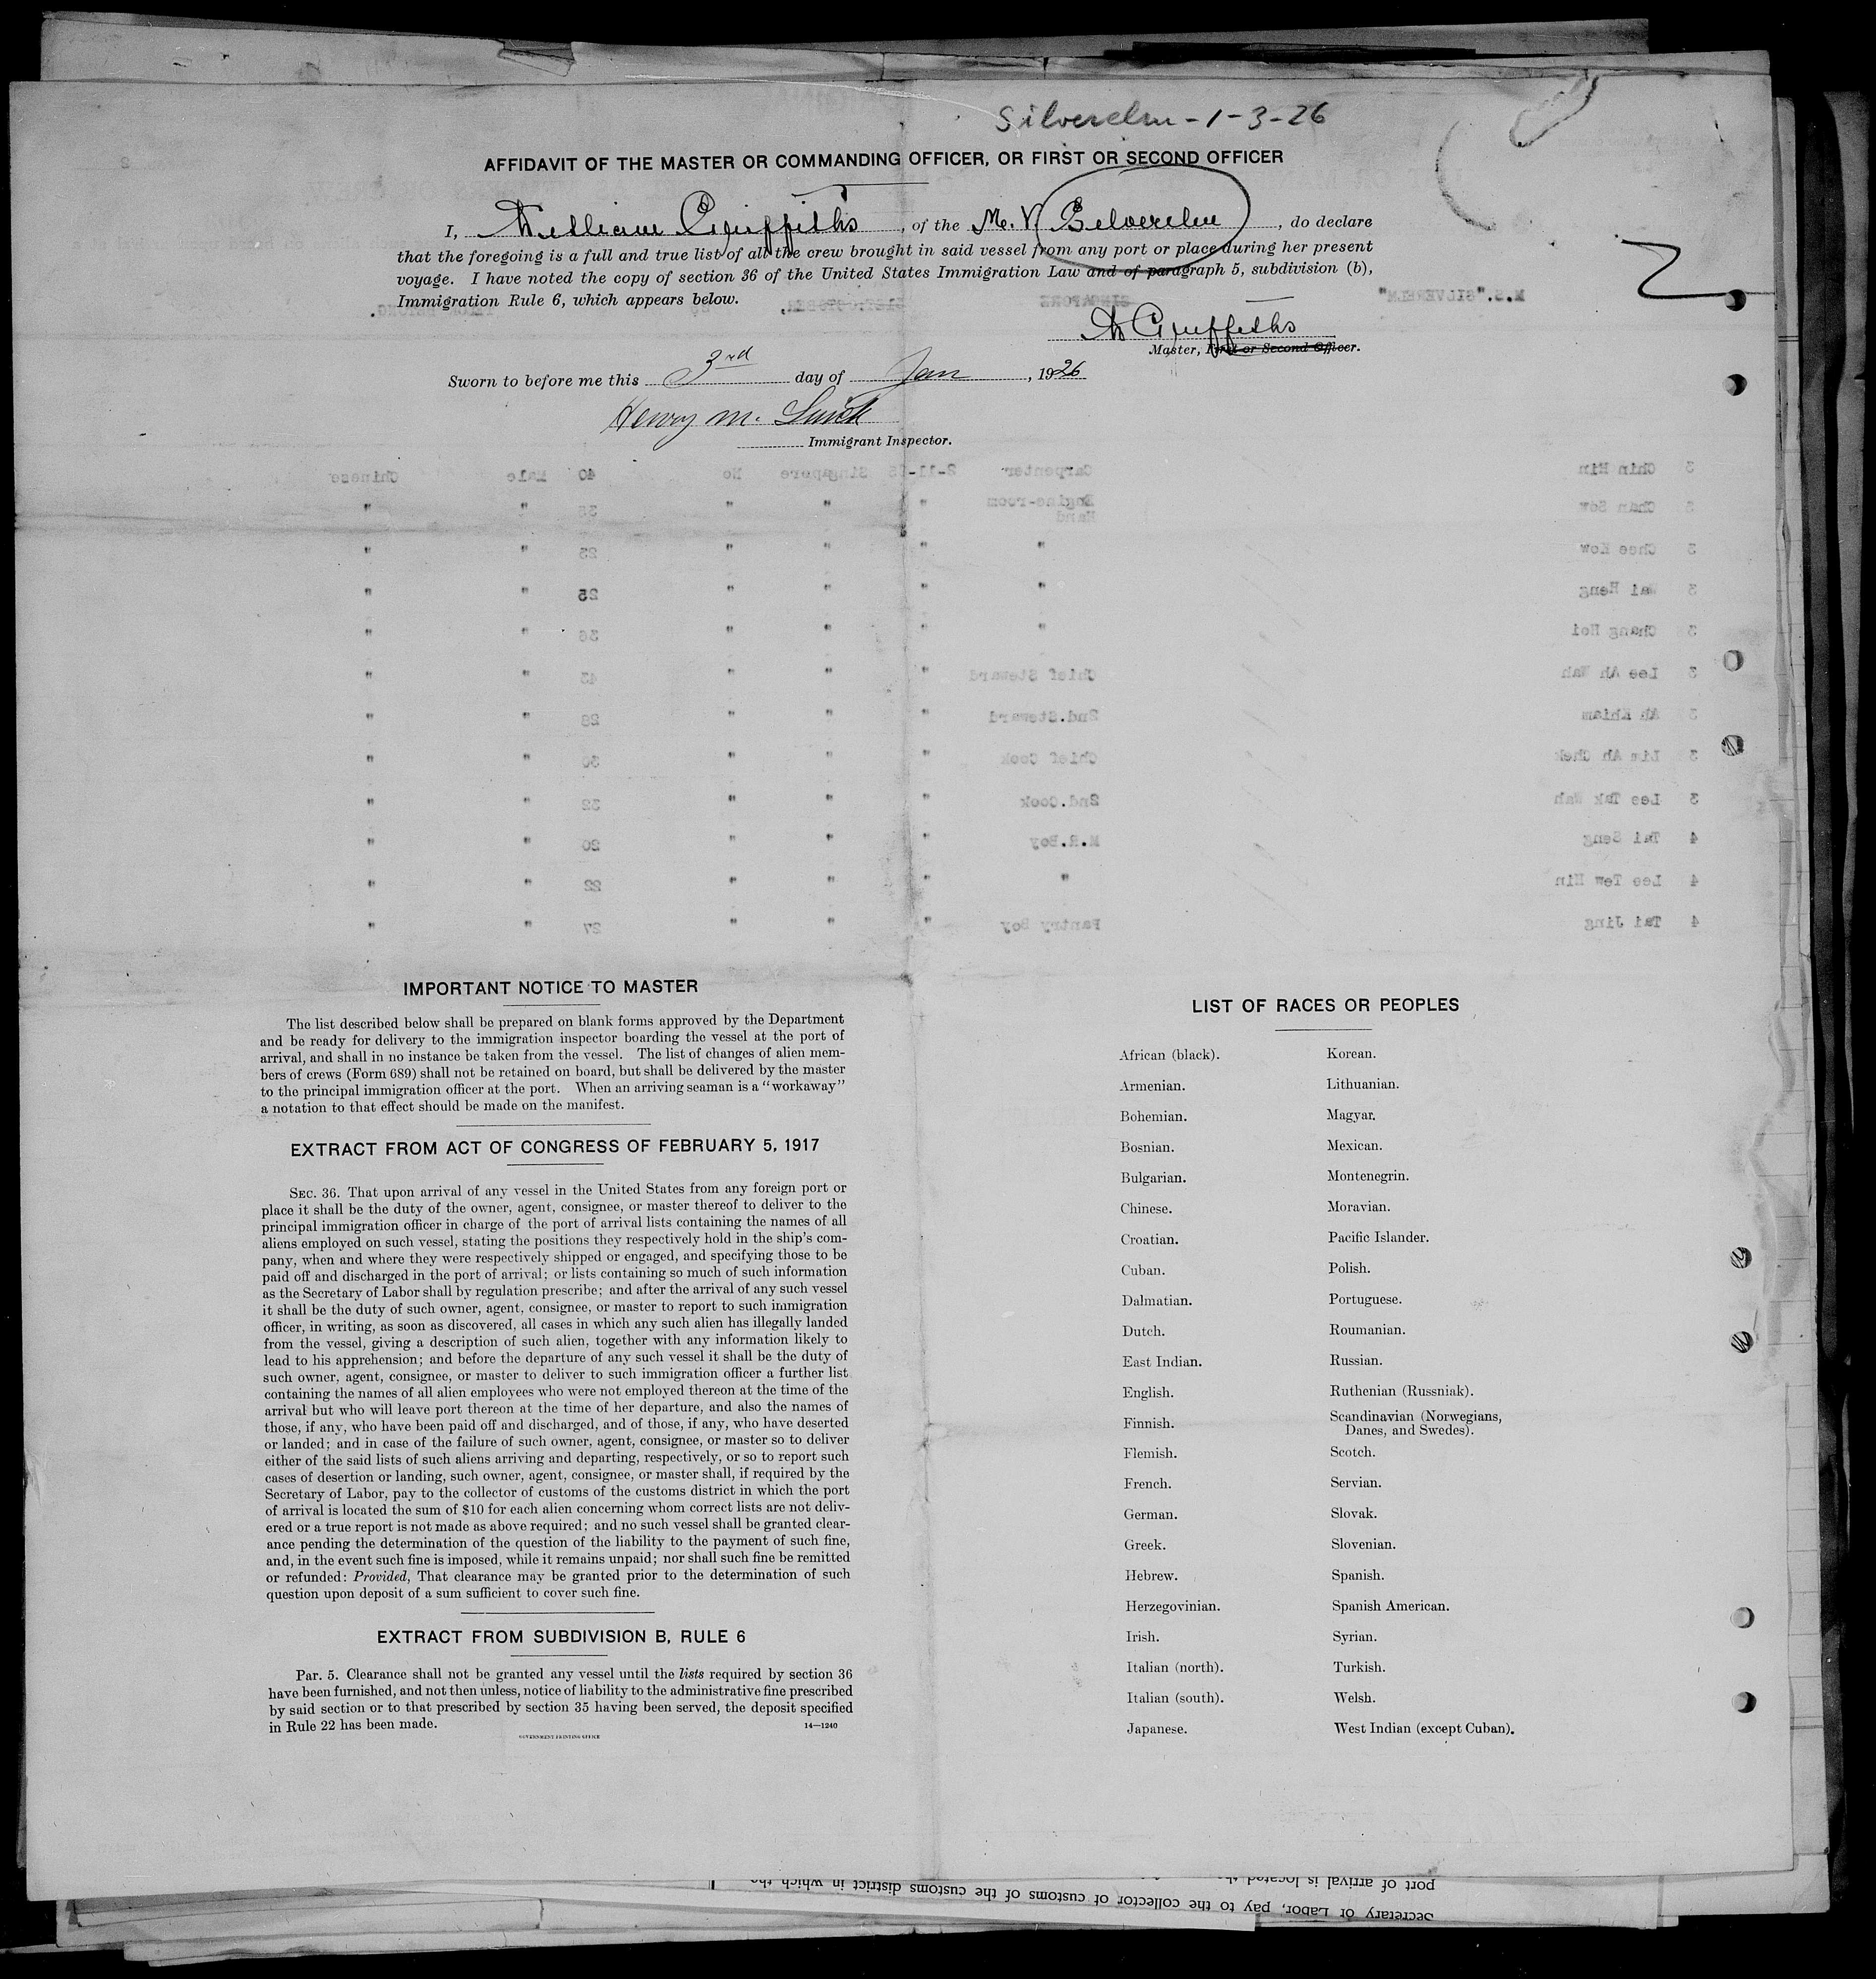 Silverelm - 1-3-26
AFFIDAVIT OF THE MASTER OR COMMANDING OFFICER, OR FIRST OR SECOND OFFICER
I, William Griffiths, of the M.V. Silverelm, do declare
that the foregoing is a full and true list of all the crew brought in said vessel from any port or place during her present
voyage. I have noted the copy of section 36 of the United States Immigration Law and of paragraph 5, subdivision (b),
Immigration Rule 6, which appears below.
M.S."SILVERELM"
SINGAPORE
W Griffiths
Master, First or Second Officer.
Sworn to before me this 3rd day of Jan, 1926
Henry M.
Immigrant Inspector.
3 Chin Hin Carpenter 2-11-25 Singapore No 40 Male Chinese
3 Chan Sow Engine-room " " " " "
Hand
3 Chee Kow " " " " 23 " "
3 Wai Heng " " " " 25 " "
3 Chang Hoi " " " " 36 " "
3 Lee Ah Wah Chief Steward " " " 43 " "
3 Ah Khiam 2nd.Steward " " " 28 " "
3 Lim Ah Chek Chief Cook " " " 30 " "
3 Lee Tak Wah 2nd.Cook " " " 32 " "
4 Tai Seng M.R.Boy " " " 20 " "
4 Lee Tew Hin " " " " 22 " "
4 Tai Jing Pantry Boy " " " 27 " "
IMPORTANT NOTICE TO MASTER
The list described below shall be prepared on blank forms approved by the Department
and be ready for delivery to the immigration inspector boarding the vessel at the port of
arrival, and shall in no instance be taken from the vessel. The list of changes of alien mem-
bers of crews (Form 689) shall not be retained on board, but shall be delivered by the master
to the principal immigration officer at the port. When an arriving seaman is a "workaway"
a notation to that effect should be made on the manifest.
EXTRACT FROM ACT OF CONGRESS OF FEBRUARY 5, 1917
SEC. 36. That upon arrival of any vessel in the United States from any foreign port or
place it shall be the duty of the owner, agent, consignee, or master thereof to deliver to the
principal immigration officer in charge of the port of arrival lists containing the names of all
aliens employed on such vessel, stating the positions they respectively hold in the ship's com-
pany, when and where they were respectively shipped or engaged, and specifying those to be
paid off and discharged in the port of arrival; or lists containing so much of such information
as the Secretary of Labor shall by regulation prescribe; and after the arrival of any such vessel
it shall be the duty of such owner, agent, consignee, or master to report to such immigration
officer, in writing, as soon as discovered, all cases in which any such alien has illegally landed
from the vessel, giving a description of such alien, together with any information likely to
lead to his apprehension; and before the departure of any such vessel it shall be the duty of
such owner, agent, consignee, or master to deliver to such immigration officer a further list
containing the names of all alien employees who were not employed thereon at the time of the
arrival but who will leave port thereon at the time of her departure, and also the names of
those, if any, who have been paid off and discharged, and of those, if any, who have deserted
or landed; and in case of the failure of such owner, agent, consignee, or master so to deliver
either of the said lists of such aliens arriving and departing, respectively, or so to report such
cases of desertion or landing, such owner, agent, consignee, or master shall, if required by the
Secretary of Labor, pay to the collector of customs of the customs district in which the port
of arrival is located the sum of $10 for each alien concerning whom correct lists are not deliv-
ered or a true report is not made as above required; and no such vessel shall be granted clear-
ance pending the determination of the question of the liability to the payment of such fine,
and, in the event such fine is imposed, while it remains unpaid; nor shall such fine be remitted
or refunded: Provided, That clearance may be granted prior to the determination of such
question upon deposit of a sum sufficient to cover such fine.
EXTRACT FROM SUBDIVISION B, RULE 6
Par. 5. Clearance shall not be granted any vessel until the lists required by section 36
have been furnished, and not then unless, notice of liability to the administrative fine prescribed
by said section or to that prescribed by section 35 having been served, the deposit specified
in Rule 22 has been made. 14—1240
GOVERNMENT PRINTING OFFICE
LIST OF RACES OR PEOPLES
African (black).
Armenian.
Bohemian.
Bosnian.
Bulgarian.
Chinese.
Croatian.
Cuban.
Dalmatian.
Dutch.
East Indian.
English.
Finnish.
Flemish.
French.
German.
Greek.
Hebrew.
Herzegovinian.
Irish.
Italian (north).
Italian (south).
Japanese.
Korean.
Lithuanian.
Magyar.
Mexican.
Montenegrin.
Moravian.
Pacific Islander.
Polish.
Portuguese.
Roumanian.
Russian.
Ruthenian (Russniak).
Scandinavian (Norwegians,
Danes, and Swedes).
Scotch.
Servian.
Slovak.
Slovenian.
Spanish.
Spanish American.
Syrian.
Turkish.
Welsh.
West Indian (except Cuban).
Secretary of Labor, pay to the collector of customs of the customs district in which the
port of arrival is located the